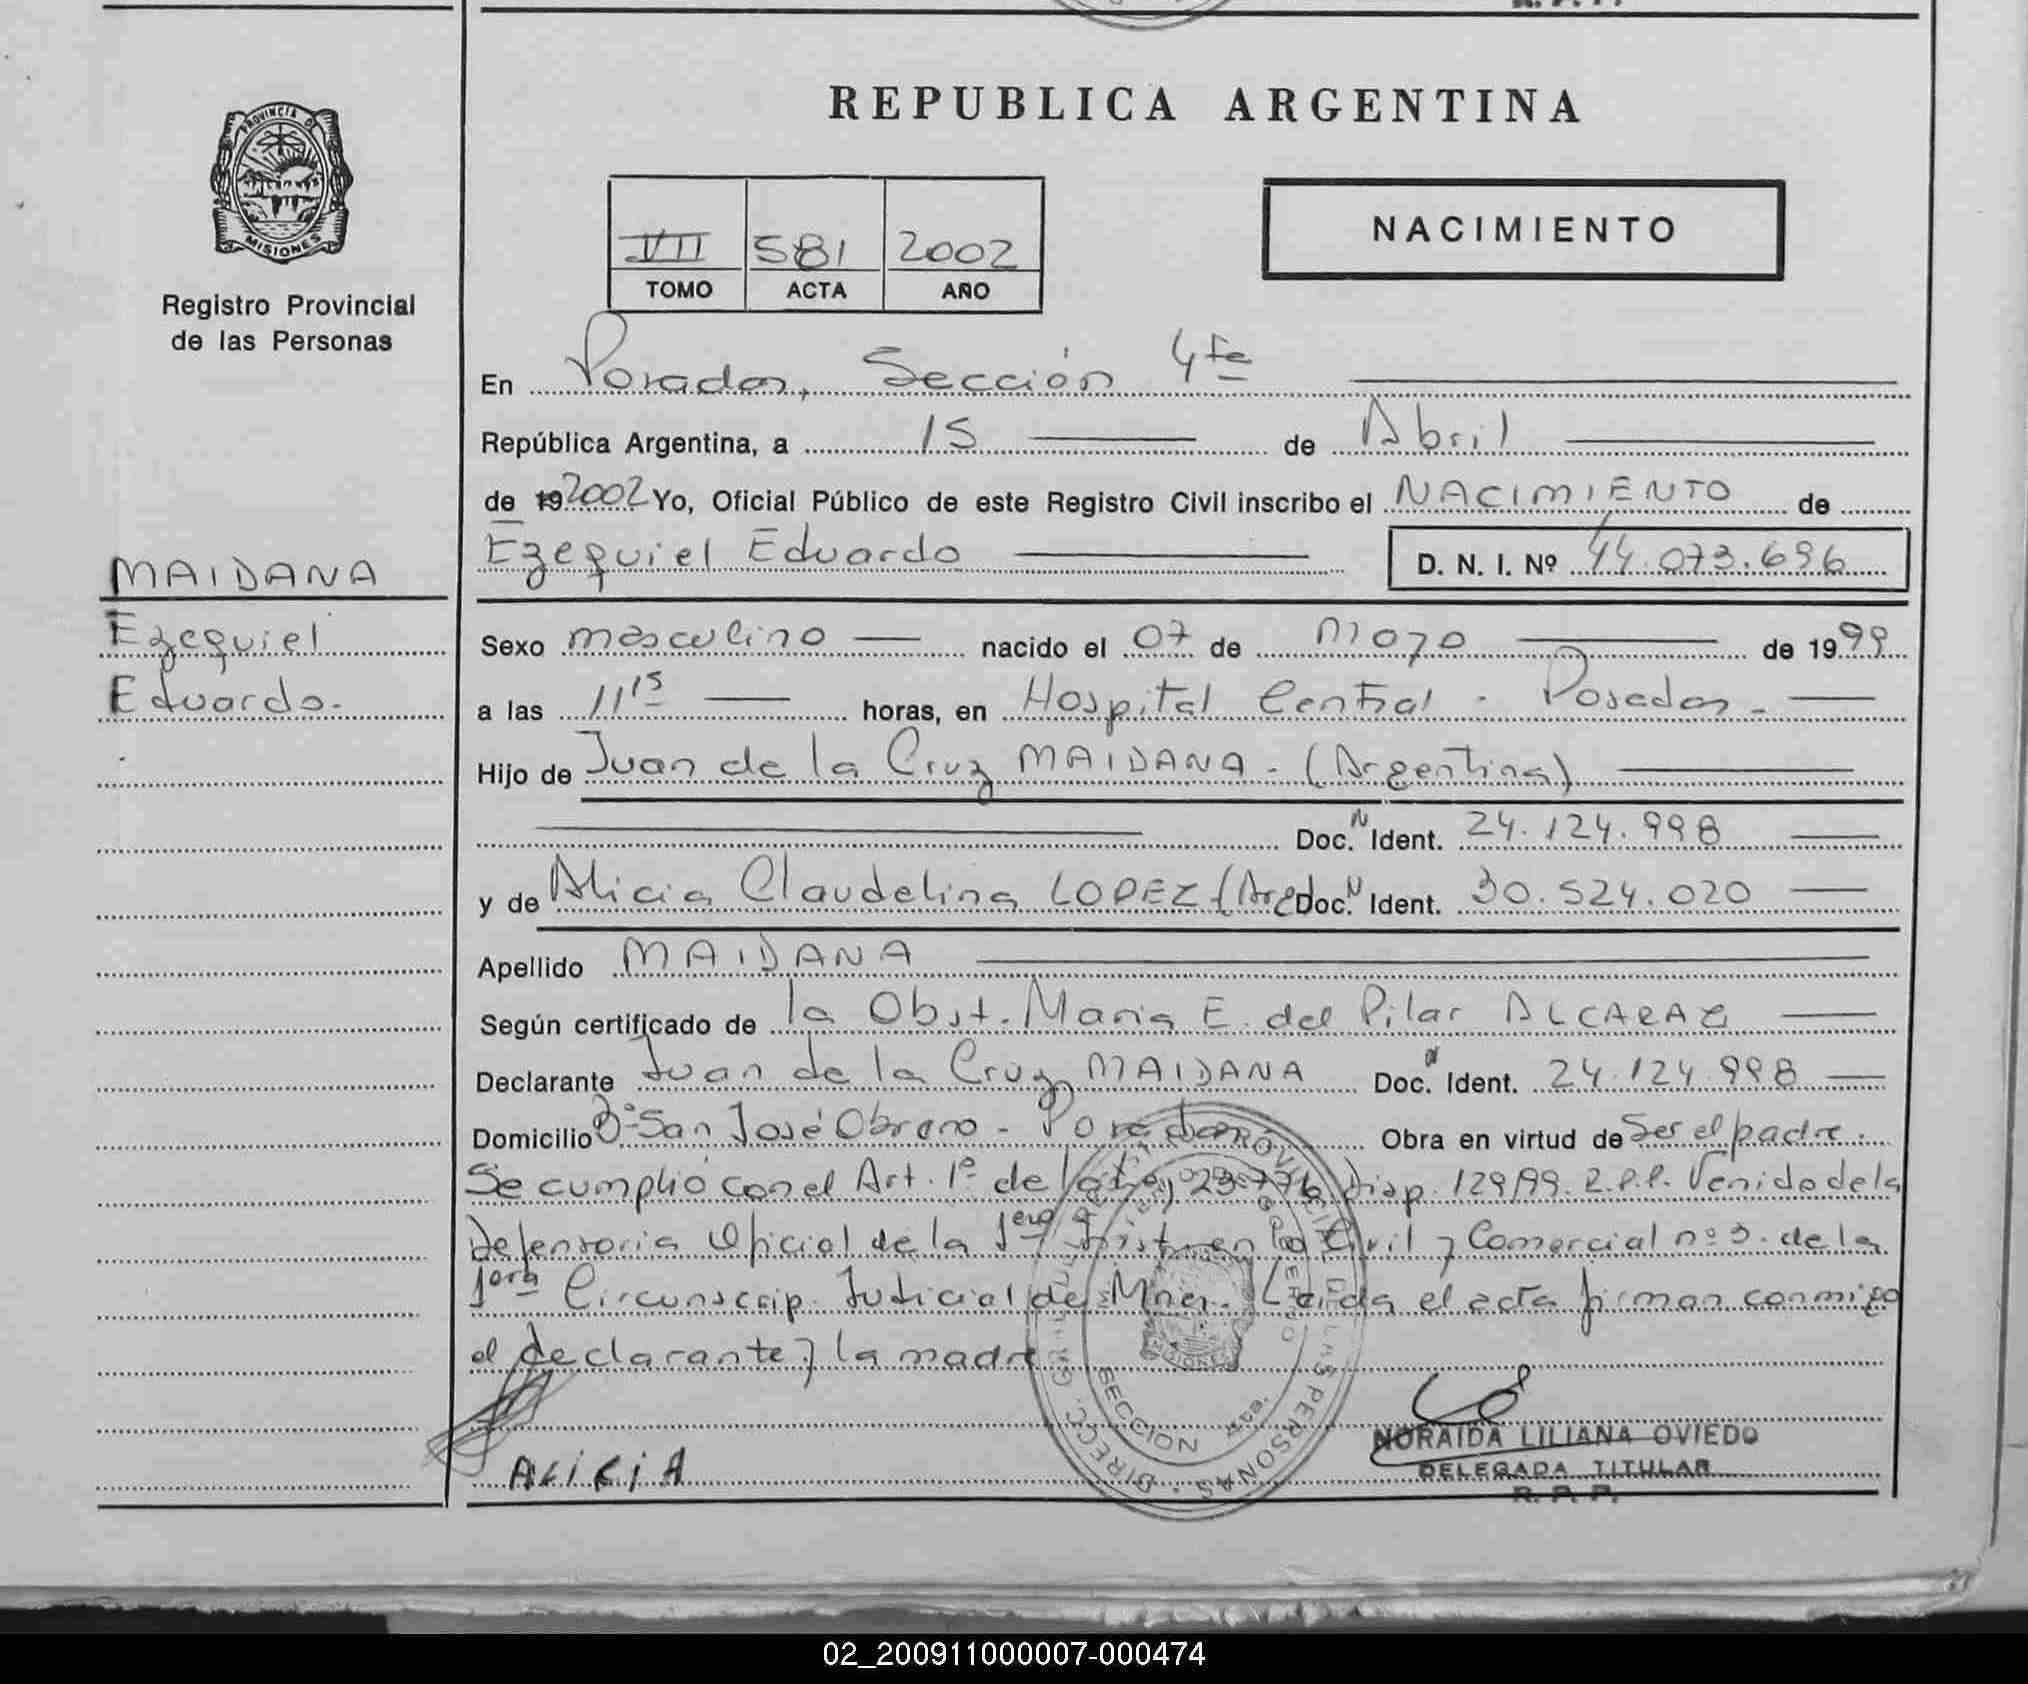 PROVINCIA DE
MISIONES
Registro Provincial
de las Personas
MAIDANA
Ezequiel
Eduardo.
REPUBLICA ARGENTINA
VII 581 2002
TOMO ACTA AÑO
NACIMIENTO
En Posadas, Sección 4ta
República Argentina, a 15 de Abril
de 19 2002 Yo, Oficial Público de este Registro Civil inscribo el NACIMIENTO de
Ezequiel Eduardo D. N. I. Nº 44.073.696
Sexo masculino nacido el 07 de mayo de 1999
a las 11 15 horas, en Hospital Central - Posadas -
Hijo de Juan de la Cruz MAIDANA - (Argentina)
Doc. N Ident. 24.124.998
y de Alicia Claudelina LOPEZ (Arg Doc. N Ident. 30.524.020
Apellido MAIDANA
Según certificado de la Obst. Maria E. del Pilar ALCARAZ
Declarante Juan de la Cruz MAIDANA Doc. N Ident. 24.124.998
Domicilio Bº San José Obrero - Posadas Obra en virtud de Ser el padre.
Se cumplió con el Art. 1º de la Ley 23.776 Disp. 129/99. R.P.P. Venido de la
Defensoria Oficial de la 1era Inst. en lo Civil y Comercial nº 3. de la
1era Circunscrip. Judicial de Mnes. Leida el acta firman conmigo
el declarante y la madre
ALICIA
SECCION 4ta.
NORAIDA LILIANA OVIEDO
DELEGADA TITULAR
R. P. P.
02_200911000007-000474